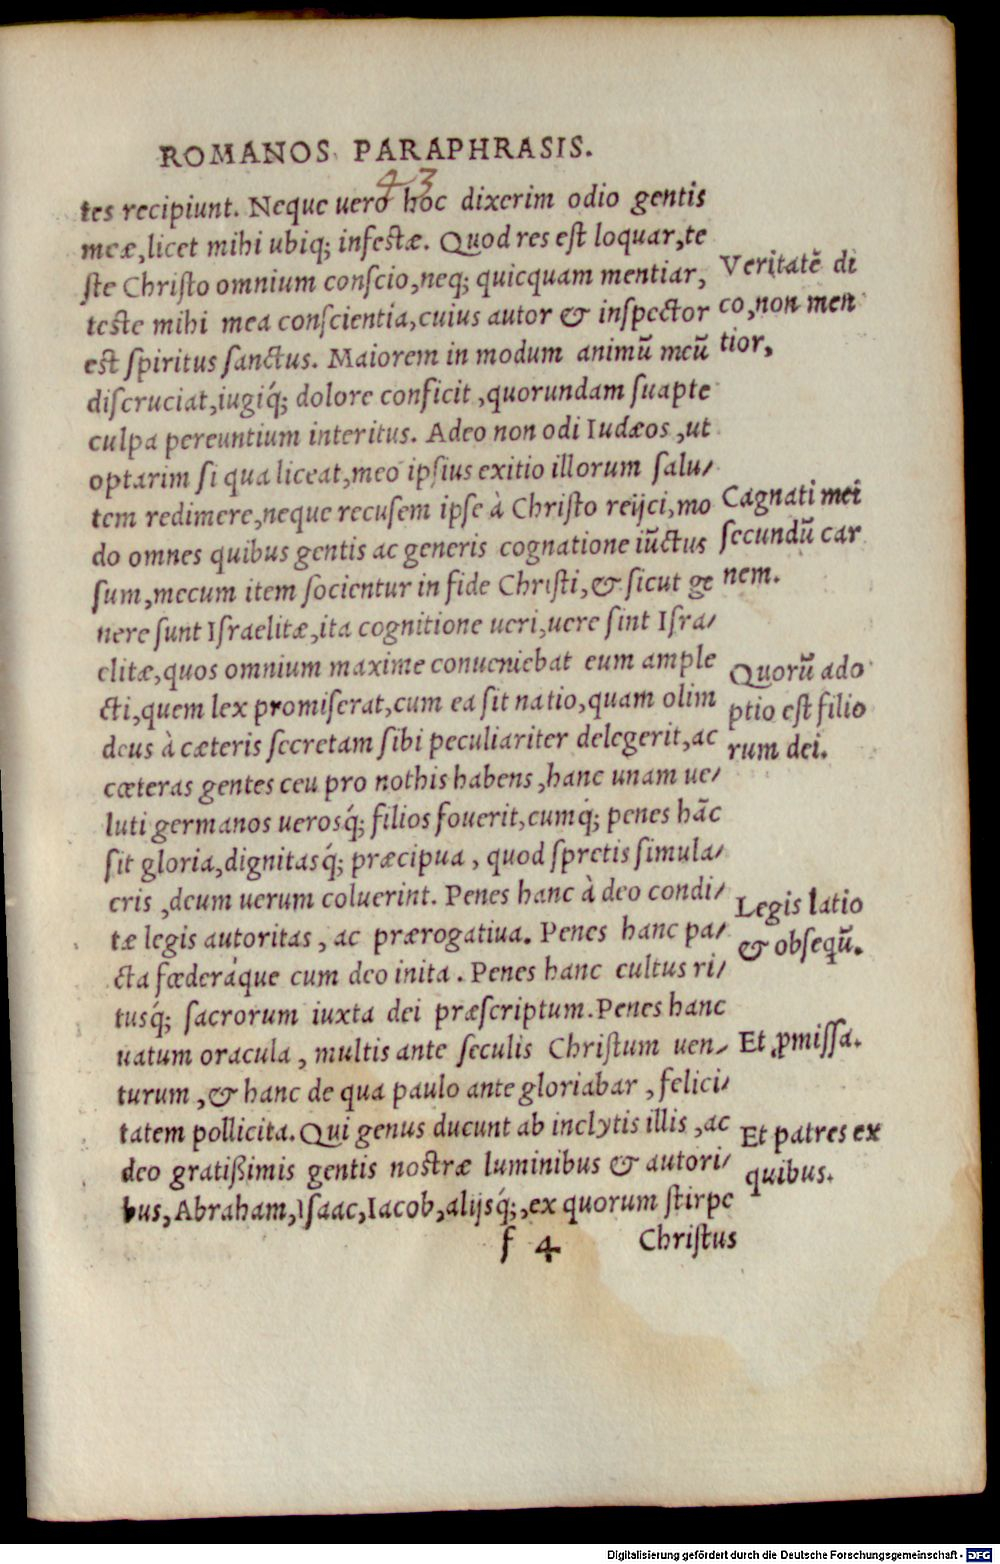 ROMANOS PARAPHRASIS.
43
tes recipiunt. Neque uero hoc dixerim odio gentis
meæ, licet mihi ubiq; infestæ. Quod res est loquar, te
ste Christo omnium conscio, neq; quicquam mentiar,
teste mihi mea conscientia, cuius autor & inspector
est spiritus sanctus. Maiorem in modum animũ meũ
discruciat, iugiq́; dolore conficit, quorundam suapte
culpa pereuntium interitus. Adeo non odi Iudæos, ut
optarim si qua liceat, meo ipsius exitio illorum salu/
tem redimere, neque recusem ipse à Christo reijci, mo
do omnes quibus gentis ac generis cognatione iũctus
sum, mecum item socientur in fide Christi, & sicut ge
nere sunt Israelitæ, ita cognitione ueri, uere sint Isra/
elitæ, quos omnium maxime conueniebat eum ample
cti, quem lex promiserat, cum ea sit natio, quam olim
deus à cæteris secretam sibi peculiariter delegerit, ac
cæteras gentes ceu pro nothis habens, hanc unam ue/
luti germanos uerosq́; filios fouerit, cumq́; penes hãc
sit gloria, dignitasq́; præcipua, quod spretis simula/
cris, deum uerum coluerint. Penes hanc à deo condi/
tæ legis autoritas, ac prærogatiua. Penes hanc pa/
cta fœderáque cum deo inita. Penes hanc cultus ri/
tusq́; sacrorum iuxta dei præscriptum. Penes hanc
uatum oracula, multis ante seculis Christum uen/
turum, & hanc de qua paulo ante gloriabar, felici/
tatem pollicita. Qui genus ducunt ab inclytis illis, ac
deo gratißimis gentis nostræ luminibus & autori/
bus, Abraham, Isaac, Iacob, alijsq́;, ex quorum stirpe
f 4 Christus
Veritatẽ di
co, non men
tior,
Cagnati mei
secundũ car
nem.
Quorũ ado
ptio est filio
rum dei.
Legis latio
& obsequũ.
Et ꝓmissa.
Et patres ex
quibus.
Digitalisierung gefördert durch die Deutsche Forschungsgemeinschaft - DFG